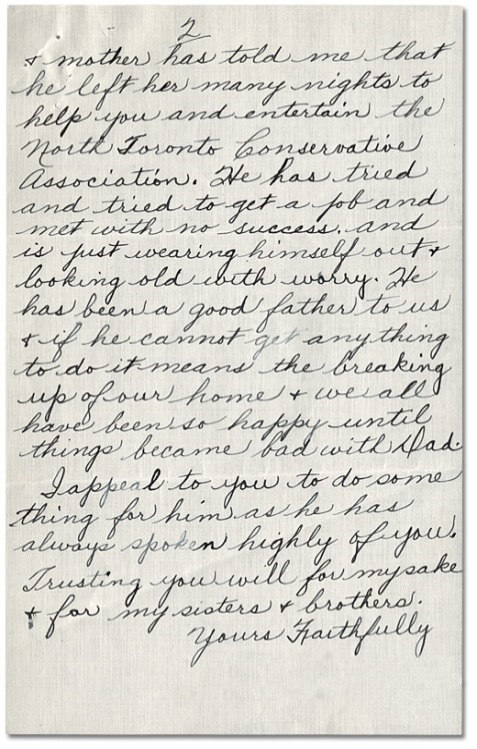 2
& mother has told me that
he left her many nights to
help you and entertain the
North Toronto Conservative
Association. He has tried
and tried to get a job and
met with no success. and
is just wearing himself out &
looking old with worry. He
has been a good father to us
& if he cannot get any thing
to do it means the breaking
up of our home & we all
have been so happy until
things became bad with Dad.
I appeal to you to do some
thing for him as he has
always spoken highly of you.
Trusting you will for my sake
& for my sisters & brothers.
Yours Faithfully